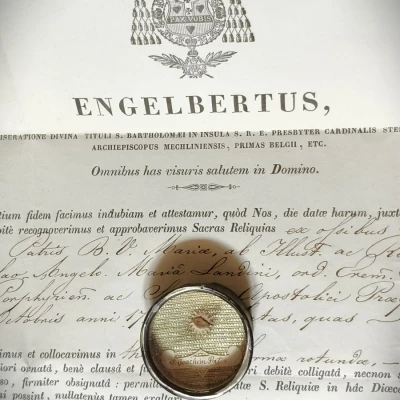 PAX VOBIS
ENGELBERTUS,
ISERATIONE DIVINA TITULI S. BARTHOLOMÆI IN INSULA S. R. E. PRESBYTER CARDINALIS STE
ARCHIEPISCOPUS MECHLINIENSIS, PRIMAS BELGII, ETC.
Omnibus has visuris salutem in Domino.
tium fidem facimus indubiam et attestamur, quòd Nos, die datæ harum, juxt
bitè recognoverimus et approbaverimus Sacras Reliquias ex ossibus
Patris B. V. Mariæ, ab Illust. ac R
ao Angelo Mariâ Landini, ord. Erem.
Porphyrien. ac Apostolici Præ
octobris anni 17 quas
imus et collocavimus in formæ rotundæ
iori ornatâ, benè clausâ et fu ori debitè colligatâ, necnon si
so, firmiter obsignatâ: permitt S. Reliquiæ in hâc Diœce
ni possint, nullatenùs tamen exdi